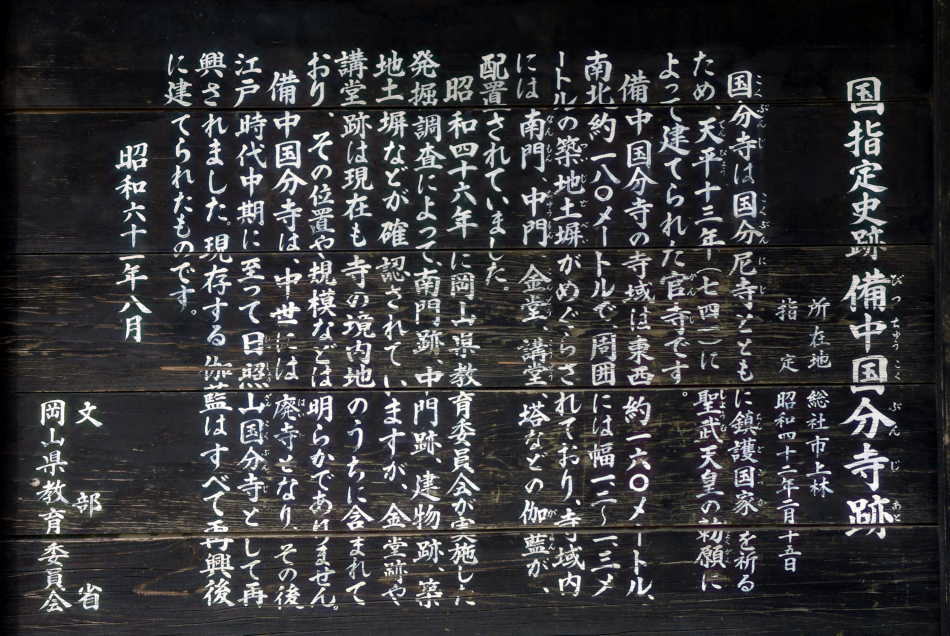 国指定史跡 備中国分寺跡
所在地 総社市上林
指定 昭和四十二年二月十五日
国分寺は国分尼寺とともに鎮護国家を祈る
ため、天平十三年(七四一)に聖武天皇の勅願に
よって建てられた官寺です。
備中国分寺の寺域は東西約一六〇メートル、
南北約一八〇メートルで、周囲には幅一・二～一・三メ
ートルの築地土塀がめぐらされており、寺域内
には南門、中門、金堂、講堂、塔などの伽藍が、
配置されていました。
昭和四十六年に岡山県教育委員会が実施した
発掘調査によって、南門跡、中門跡、建物跡、築
地土塀などが確認されていますが、金堂跡や
講堂跡は現在も寺の境内地のうちに含まれて
おり、その位置や規模などは明らかでありません。
備中国分寺は、中世には廃寺となり、その後、
江戸時代中期に至って日照山国分寺として再
興されました。現存する伽藍はすべて再興後
に建てられたものです。
昭和六十一年八月
文部省
岡山県教育委員会